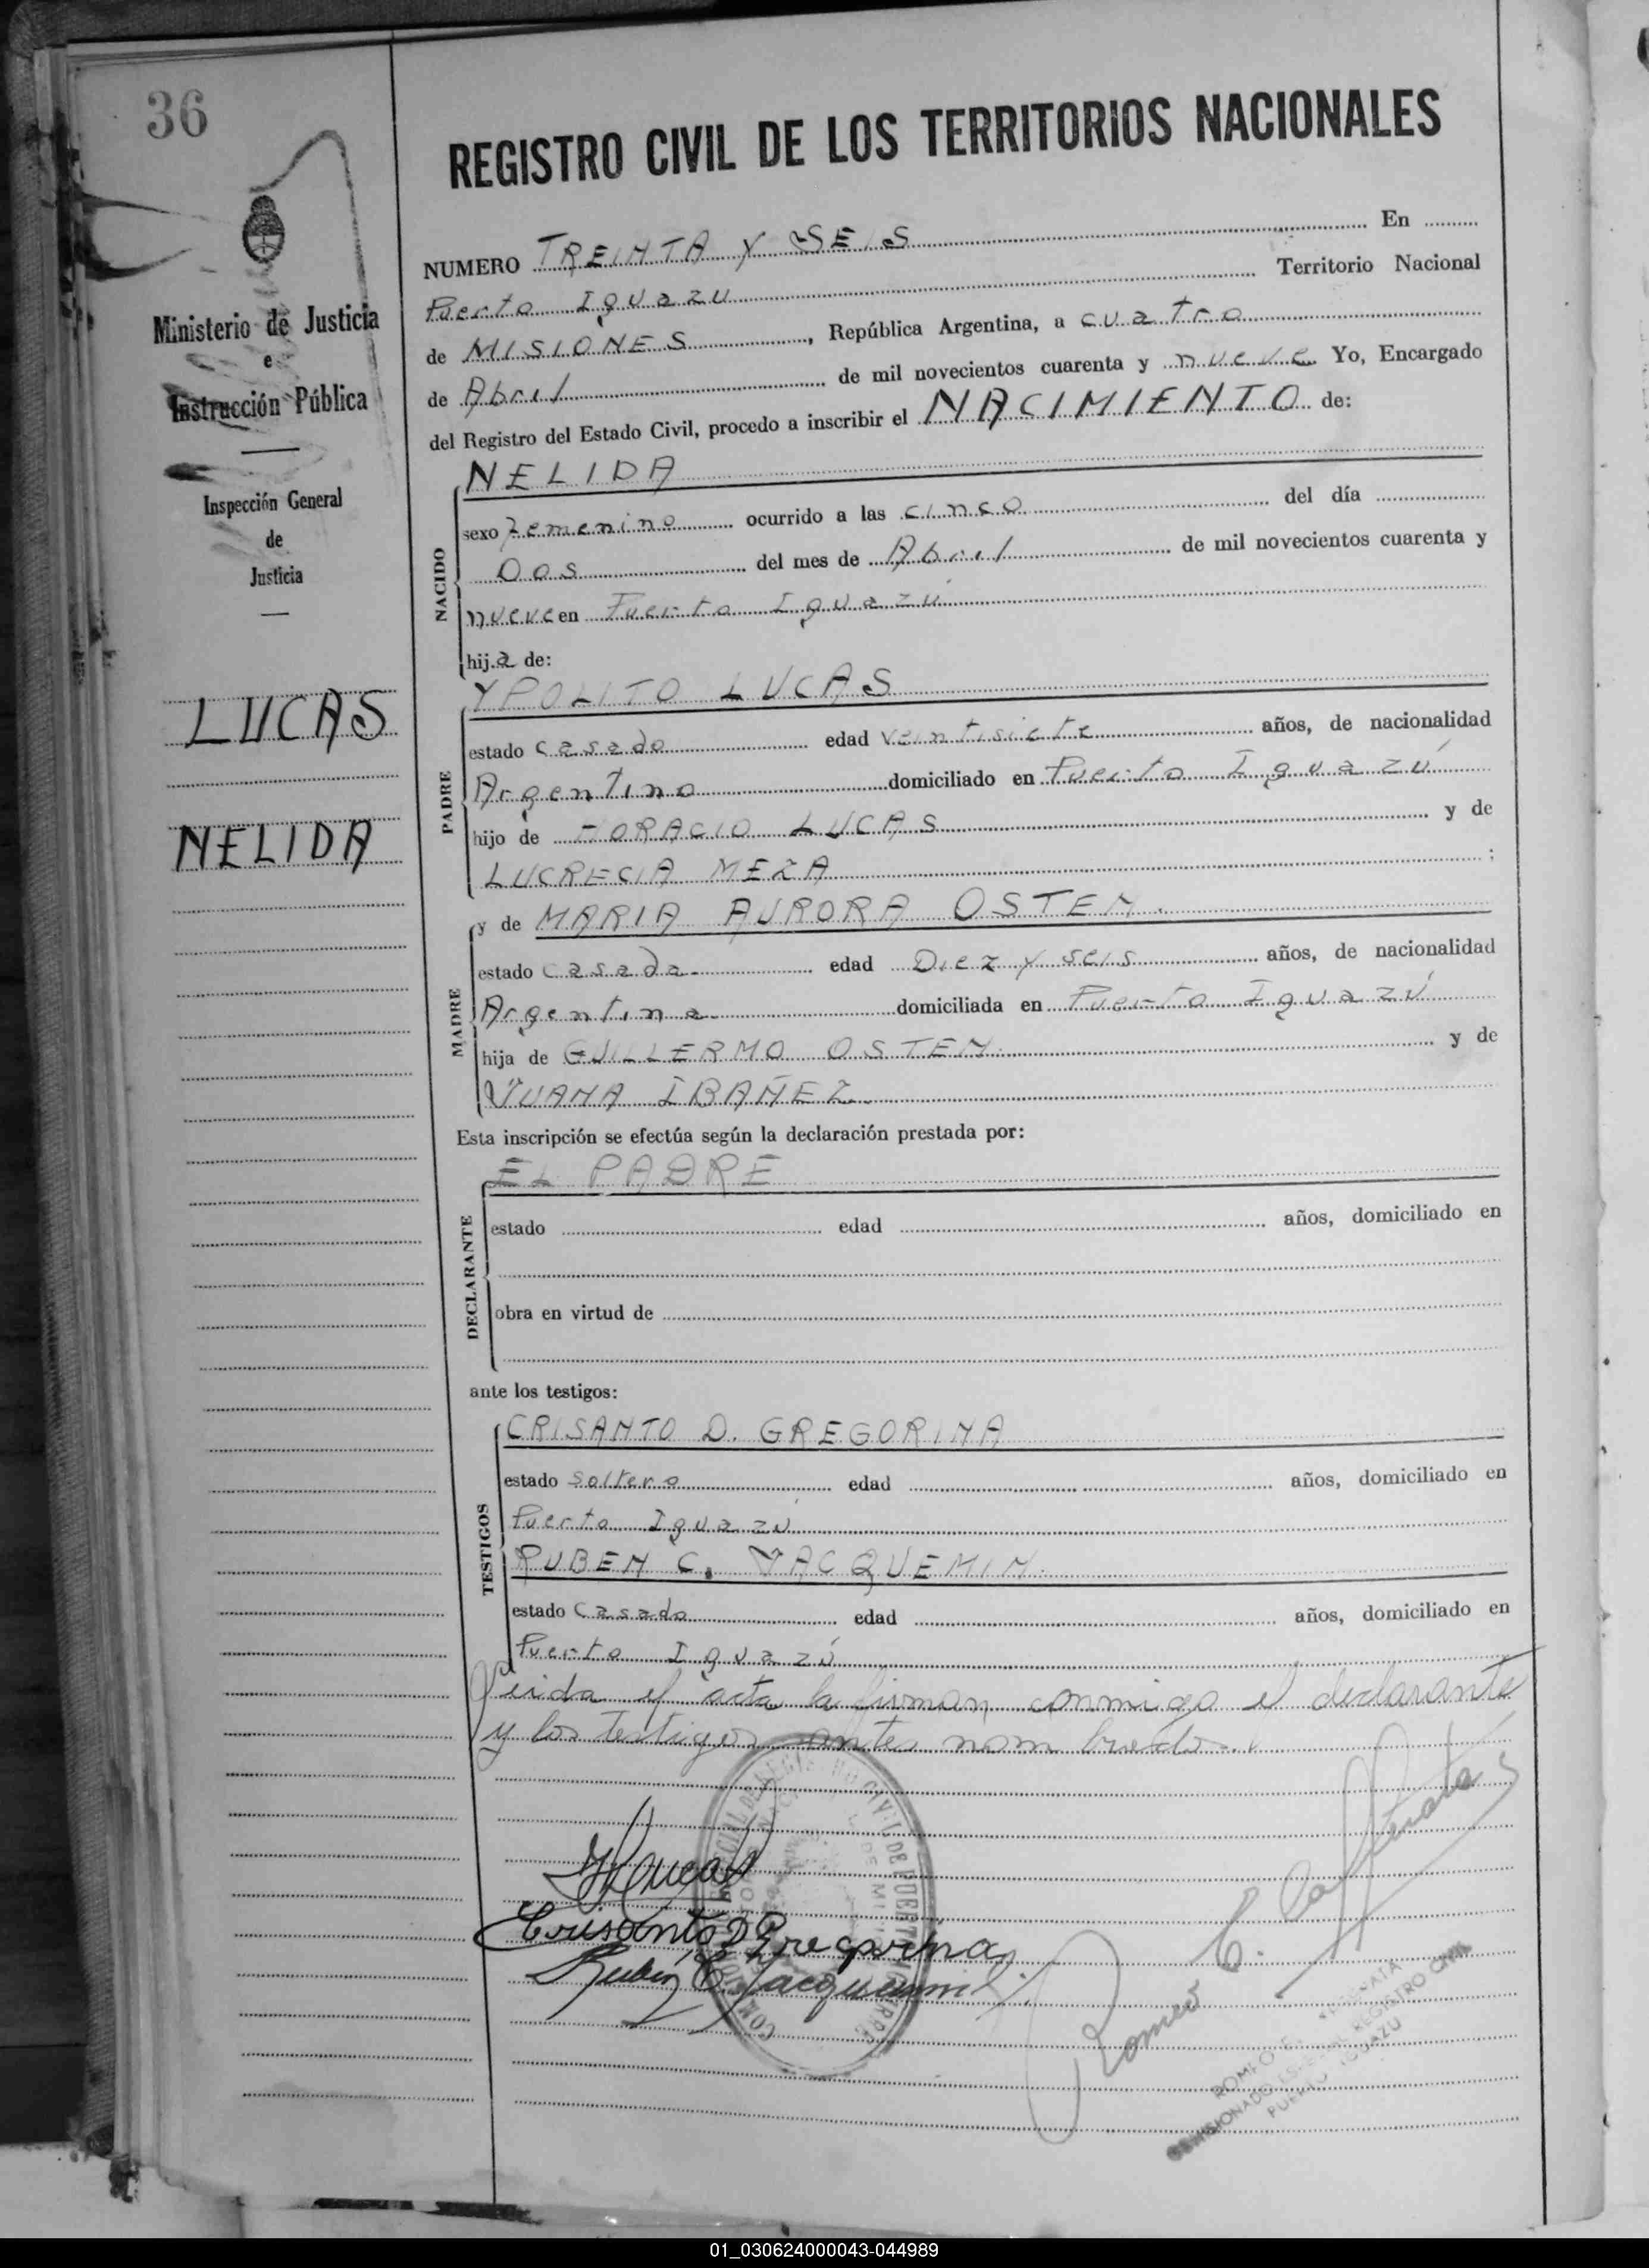 36
Ministerio de Justicia
e
Instrucción Pública
Inspección General
de
Justicia
LUCAS
NELIDA
REGISTRO CIVIL DE LOS TERRITORIOS NACIONALES
NUMERO TREINTA Y SEIS En
Puerto Iguazu Territorio Nacional
de MISIONES, República Argentina, a cuatro
de Abril de mil novecientos cuarenta y nueve Yo, Encargado
del Registro del Estado Civil, procedo a inscribir el NACIMIENTO de:
NACIDO
NELIDA
sexo Femenino ocurrido a las cinco del día
Dos del mes de Abril de mil novecientos cuarenta y
nueve en Puerto Iguazú
hija de:
PADRE
YPOLITO LUCAS
estado casado edad veintisiete años, de nacionalidad
Argentino domiciliado en Puerto Iguazú
hijo de HORACIO LUCAS y de
LUCRECIA MEZA ;
MADRE
y de MARIA AURORA OSTEN.
estado casada edad Diez y seis años, de nacionalidad
Argentina domiciliada en Puerto Iguazú
hija de GUILLERMO OSTEN y de
JUANA IBAÑEZ.
Esta inscripción se efectúa según la declaración prestada por:
DECLARANTE
EL PADRE
estado edad años, domiciliado en
obra en virtud de
ante los testigos:
TESTIGOS
CRISANTO D. GREGORINA
estado soltero edad años, domiciliado en
Puerto Iguazú
RUBEN C. JACQUEMIN.
estado casado edad años, domiciliado en
Puerto Iguazú
Leida el acta la firman conmigo el declarante
y los testigos antes nombrados.
YLucas
Crisanto D Gregorina
Rubén C. Jacquemin
Romeo C.
ROMEO
COMISIONADO ESPECIAL REGISTRO CIVIL
PUERTO IGUAZU
01_030624000043-044989